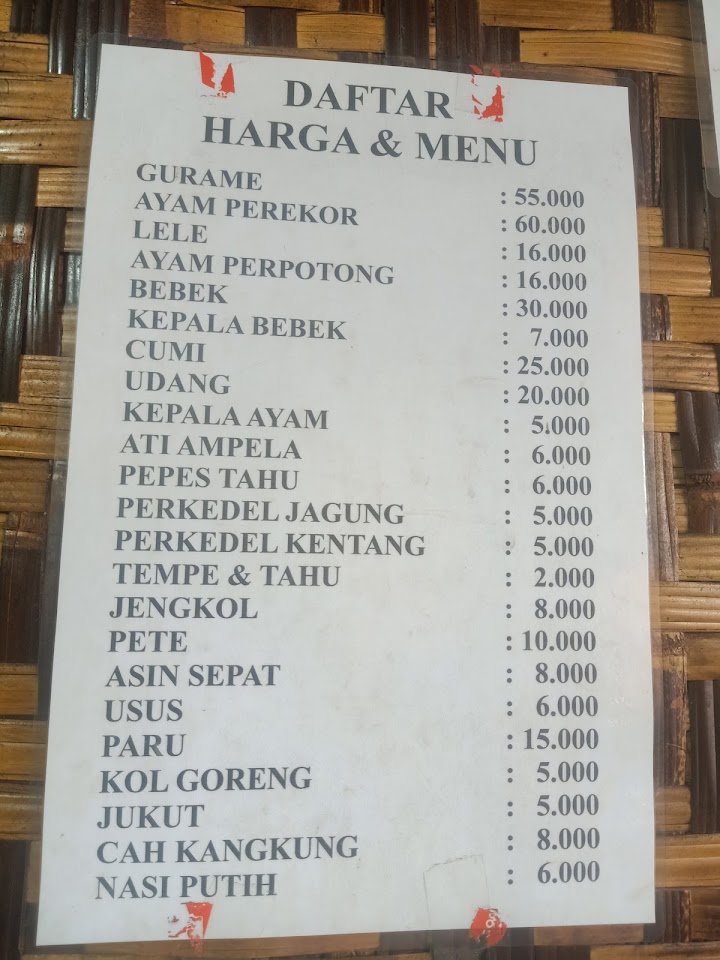 DAFTAR
HARGA & MENU
GURAME : 55.000
AYAM PEREKOR : 60.000
LELE : 16.000
AYAM PERPOTONG : 16.000
BEBEK : 30.000
KEPALA BEBEK : 7.000
CUMI : 25.000
UDANG : 20.000
KEPALA AYAM : 5.000
ATI AMPELA : 6.000
PEPES TAHU : 6.000
PERKEDEL JAGUNG : 5.000
PERKEDEL KENTANG : 5.000
TEMPE & TAHU : 2.000
JENGKOL : 8.000
PETE : 10.000
ASIN SEPAT : 8.000
USUS : 6.000
PARU : 15.000
KOL GORENG : 5.000
JUKUT : 5.000
CAH KANGKUNG : 8.000
NASI PUTIH : 6.000